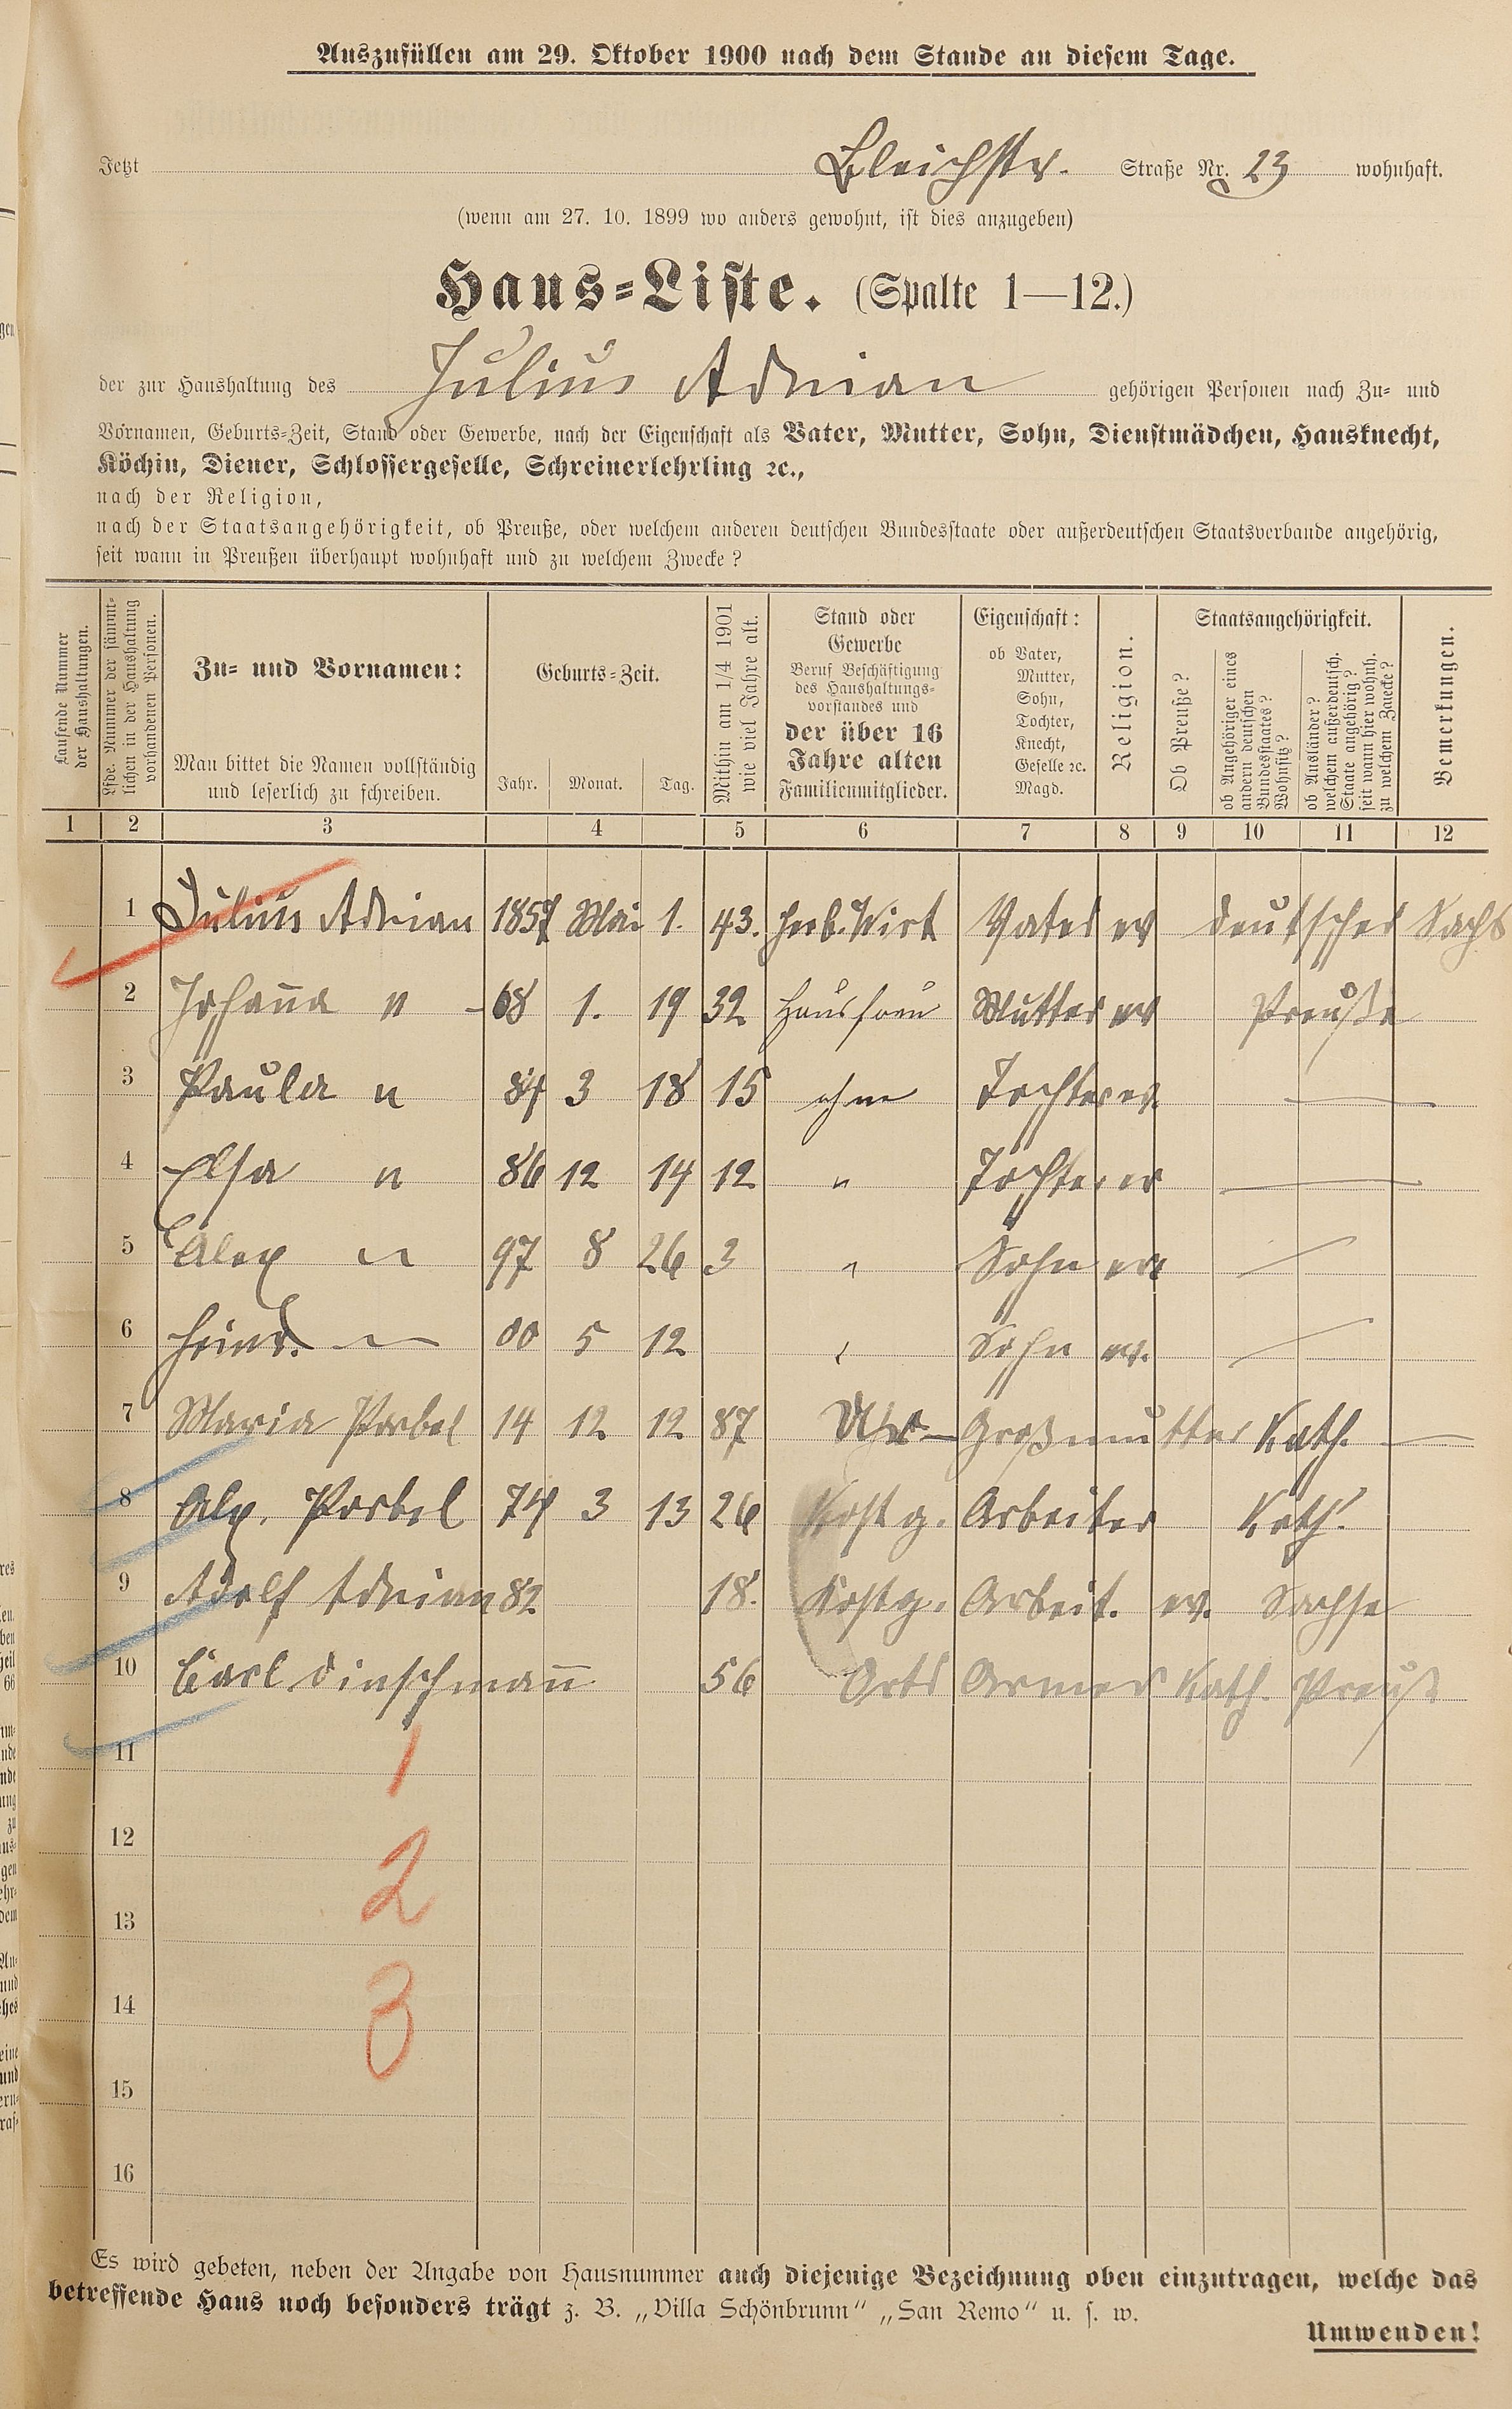 Auszufüllen am 29. Oktober 1900 nach dem Stande an diesem Tage.
Jetzt Bleichstr. Straße Nr. 23 wohnhaft.
(wenn am 27. 10. 1899 wo anders gewohnt, ist dies anzugeben)
Haus-Liste. (Spalte 1—12.)
der zur Haushaltung des Julius Adrian gehörigen Personen nach Zu- und
Vornamen, Geburts-Zeit, Stand oder Gewerbe, nach der Eigenschaft als Vater, Mutter, Sohn, Dienstmädchen, Hausknecht,
Köchin, Diener, Schlossergeselle, Schreinerlehrling ꝛc.,
nach der Religion,
nach der Staatsangehörigkeit, ob Preuße, oder welchem anderen deutschen Bundesstaate oder außerdeutschen Staatsverbande angehörig,
seit wann in Preußen überhaupt wohnhaft und zu welchem Zwecke?
Laufende Nummer
der Haushaltungen.
Lfde. Nummer der sämmt-
lichen in der Haushaltung
vorhandenen Personen.
Zu- und Vornamen:
Man bittet die Namen vollständig
und leserlich zu schreiben.
Geburts-Zeit.
Jahr. Monat. Tag.
Mithin am 1/4 1901
wie viel Jahre alt.
Stand oder
Gewerbe
Beruf Beschäftigung
des Haushaltungs-
vorstandes und
der über 16
Jahre alten
Familienmitglieder.
Eigenschaft:
ob Vater,
Mutter,
Sohn,
Tochter,
Knecht,
Geselle ꝛc.
Magd.
Religion.
Staatsangehörigkeit.
Ob Preuße?
ob Angehöriger eines
andern deutschen
Bundesstaates?
Wohnsitz?
ob Ausländer?
welchem außerdeutsch.
Staate angehörig?
seit wann hier wohnh.
zu welchem Zwecke?
Bemerkungen.
1 2 3 4 5 6 7 8 9 10 11 12
1 Julius Adrian 1857 Mai 1. 43. Herb. Wirt Vater ev deutscher Sachs
2 Johanna " 68 1. 19 32 Hausfrau Mutter ev Preuße
3 Paula " 84 3 18 15 ohne Tochter ev. —
4 Elsa " 86 12 14 12 " Tochter ev —
5 Alex " 97 8 26 3 " Sohn ev —
6 Heinr. — 00 5 12 " Sohn ev. —
7 Maria Porbel 14 12 12 87 Ur-Großmutter Kath. —
8 Alex. Porbel 74 3 13 26 Kostg. Arbeiter Kath.
9 Adolf Adrian 82 18. Kostg. Arbeit. ev. Sachse
10 Carl 56 Orts Armer Kath. Preuß
11 1
12 2
13
14 3
15
16
Es wird gebeten, neben der Angabe von Hausnummer auch diejenige Bezeichnung oben einzutragen, welche das
betreffende Haus noch besonders trägt z. B. „Villa Schönbrunn“ „San Remo“ u. s. w.
Umwenden!